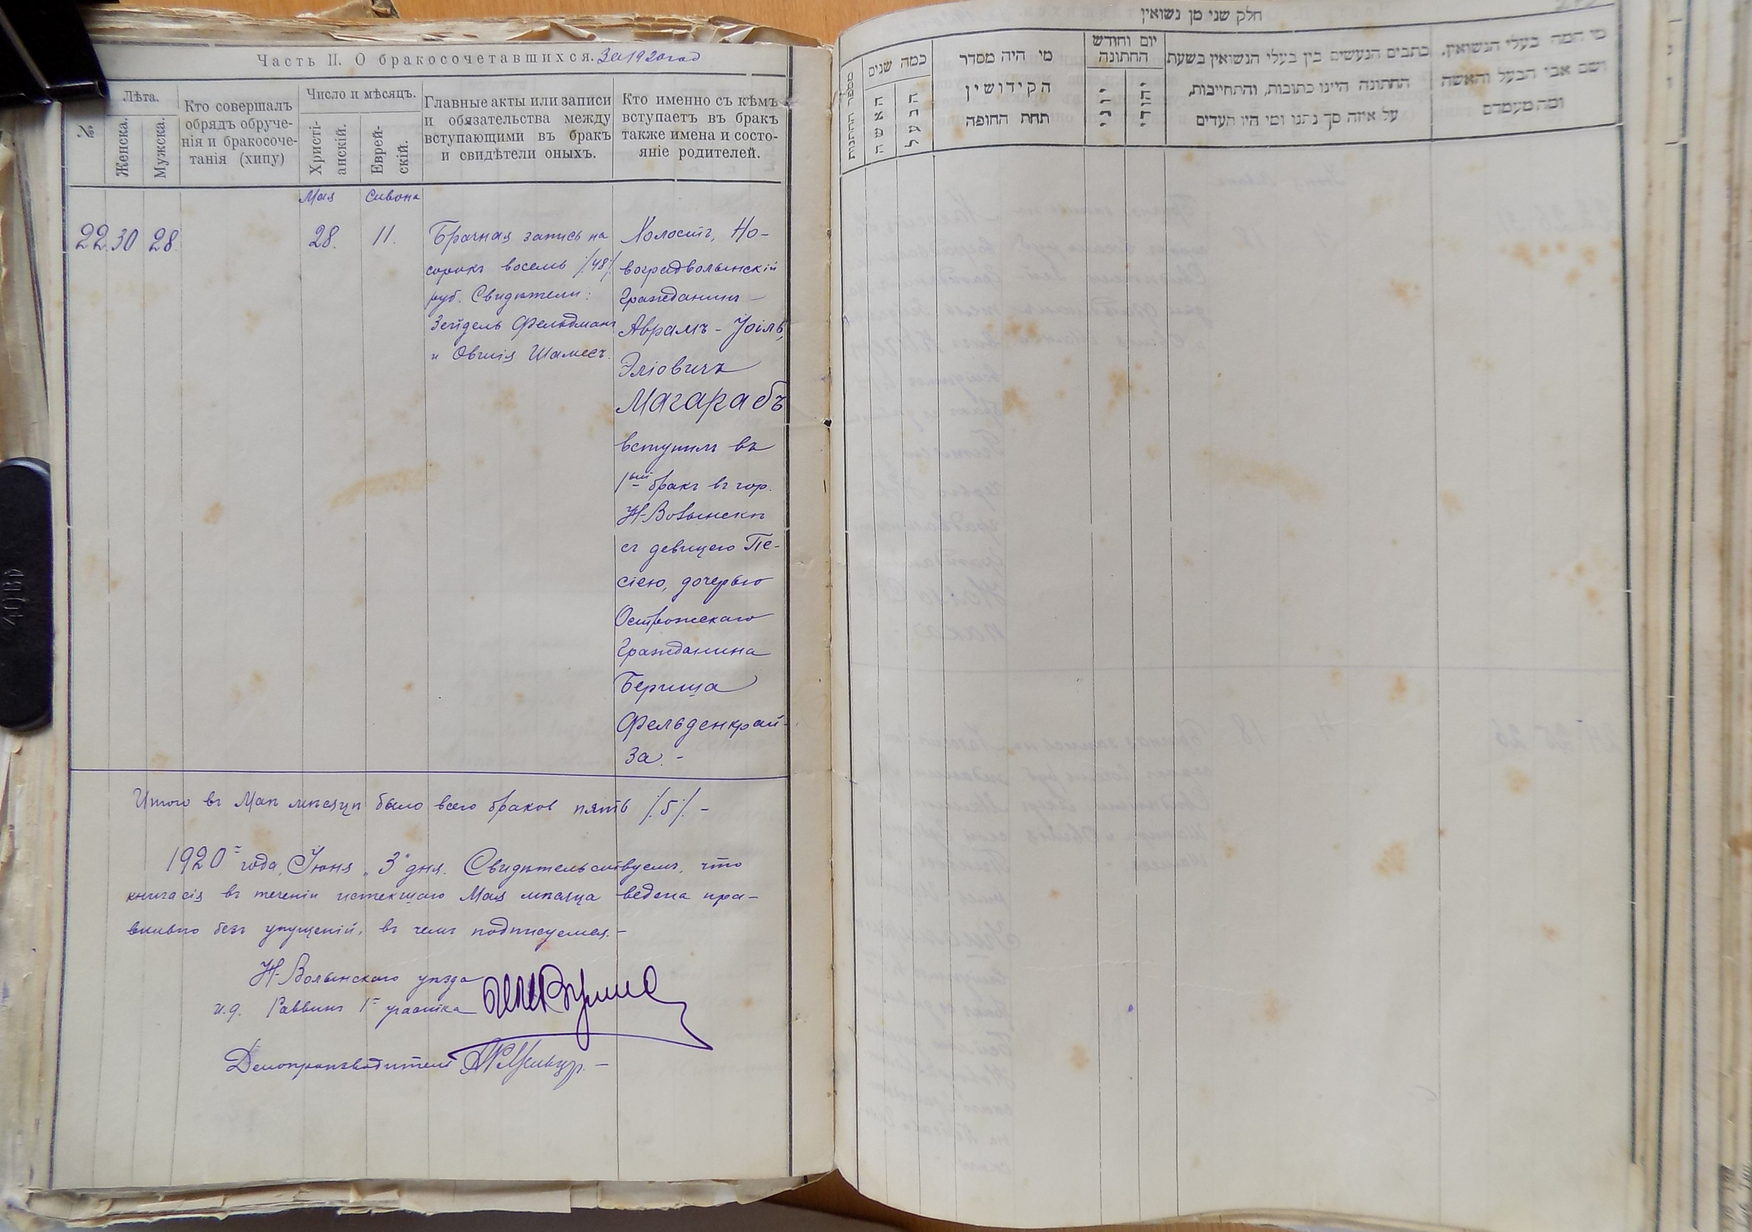 Часть II. О бракосочетавшихся. За 1920 год
№
Лѣта.
Женска.
Мужска.
Кто совершалъ
обрядъ обруче-
нія и бракосоче-
танія (хипу)
Число и мѣсяцъ.
Христі-
анскій.
Еврей-
скій.
Главные акты или записи
и обязательства между
вступающими въ бракъ
и свидѣтели оныхъ.
Кто именно съ кѣмъ
вступаетъ въ бракъ
также имена и состо-
яніе родителей.
Мая
Сивона
22. 30 28
28.
11.
Брачная запись на
сорокъ восемь /48/
руб. Свидѣтели:
Зейдель Фельдманъ
и Овшія Шамесъ.
Холостъ, Но-
воградволынскій
Гражданинъ
Аврамъ-Іоіль
Эліовичъ
Магарабъ
вступилъ въ
1ый бракъ въ гор.
Н-Волынскѣ
съ девицею Пе-
сіею, дочерью
Острожскаго
Гражданина
Бериша
Фельденкрай-
за. -
Итого въ Маѣ мѣсяцѣ было всего браков пять /5/. -
1920 г. года, Іюня „3" дня. Свидѣтельствуемъ, что
книга сія въ теченіи истекшаго Мая мѣсяца ведена пра-
вильно безъ упущеній, въ чемъ подписуемся. -
Н-Волынскаго уѣзда
и.д. Раввинъ 1 участка
Делопроизводитель
חלק שני מן נשואין
מספר החתונות
כמה שנים
האשה
הבעל
מי היה מסדר
הקידושין
תחת החופה
יום וחודש
החתונה
יוני
יהודי
כתבים הנעשים בין בעלי הנשואין בשעת
החתונה היינו כתובות, והתחייבות,
על איזה סך נתנו ומי היו העדים
מי המה בעלי הנשואין,
ושם אבי הבעל והאשה
ומה מעמדם